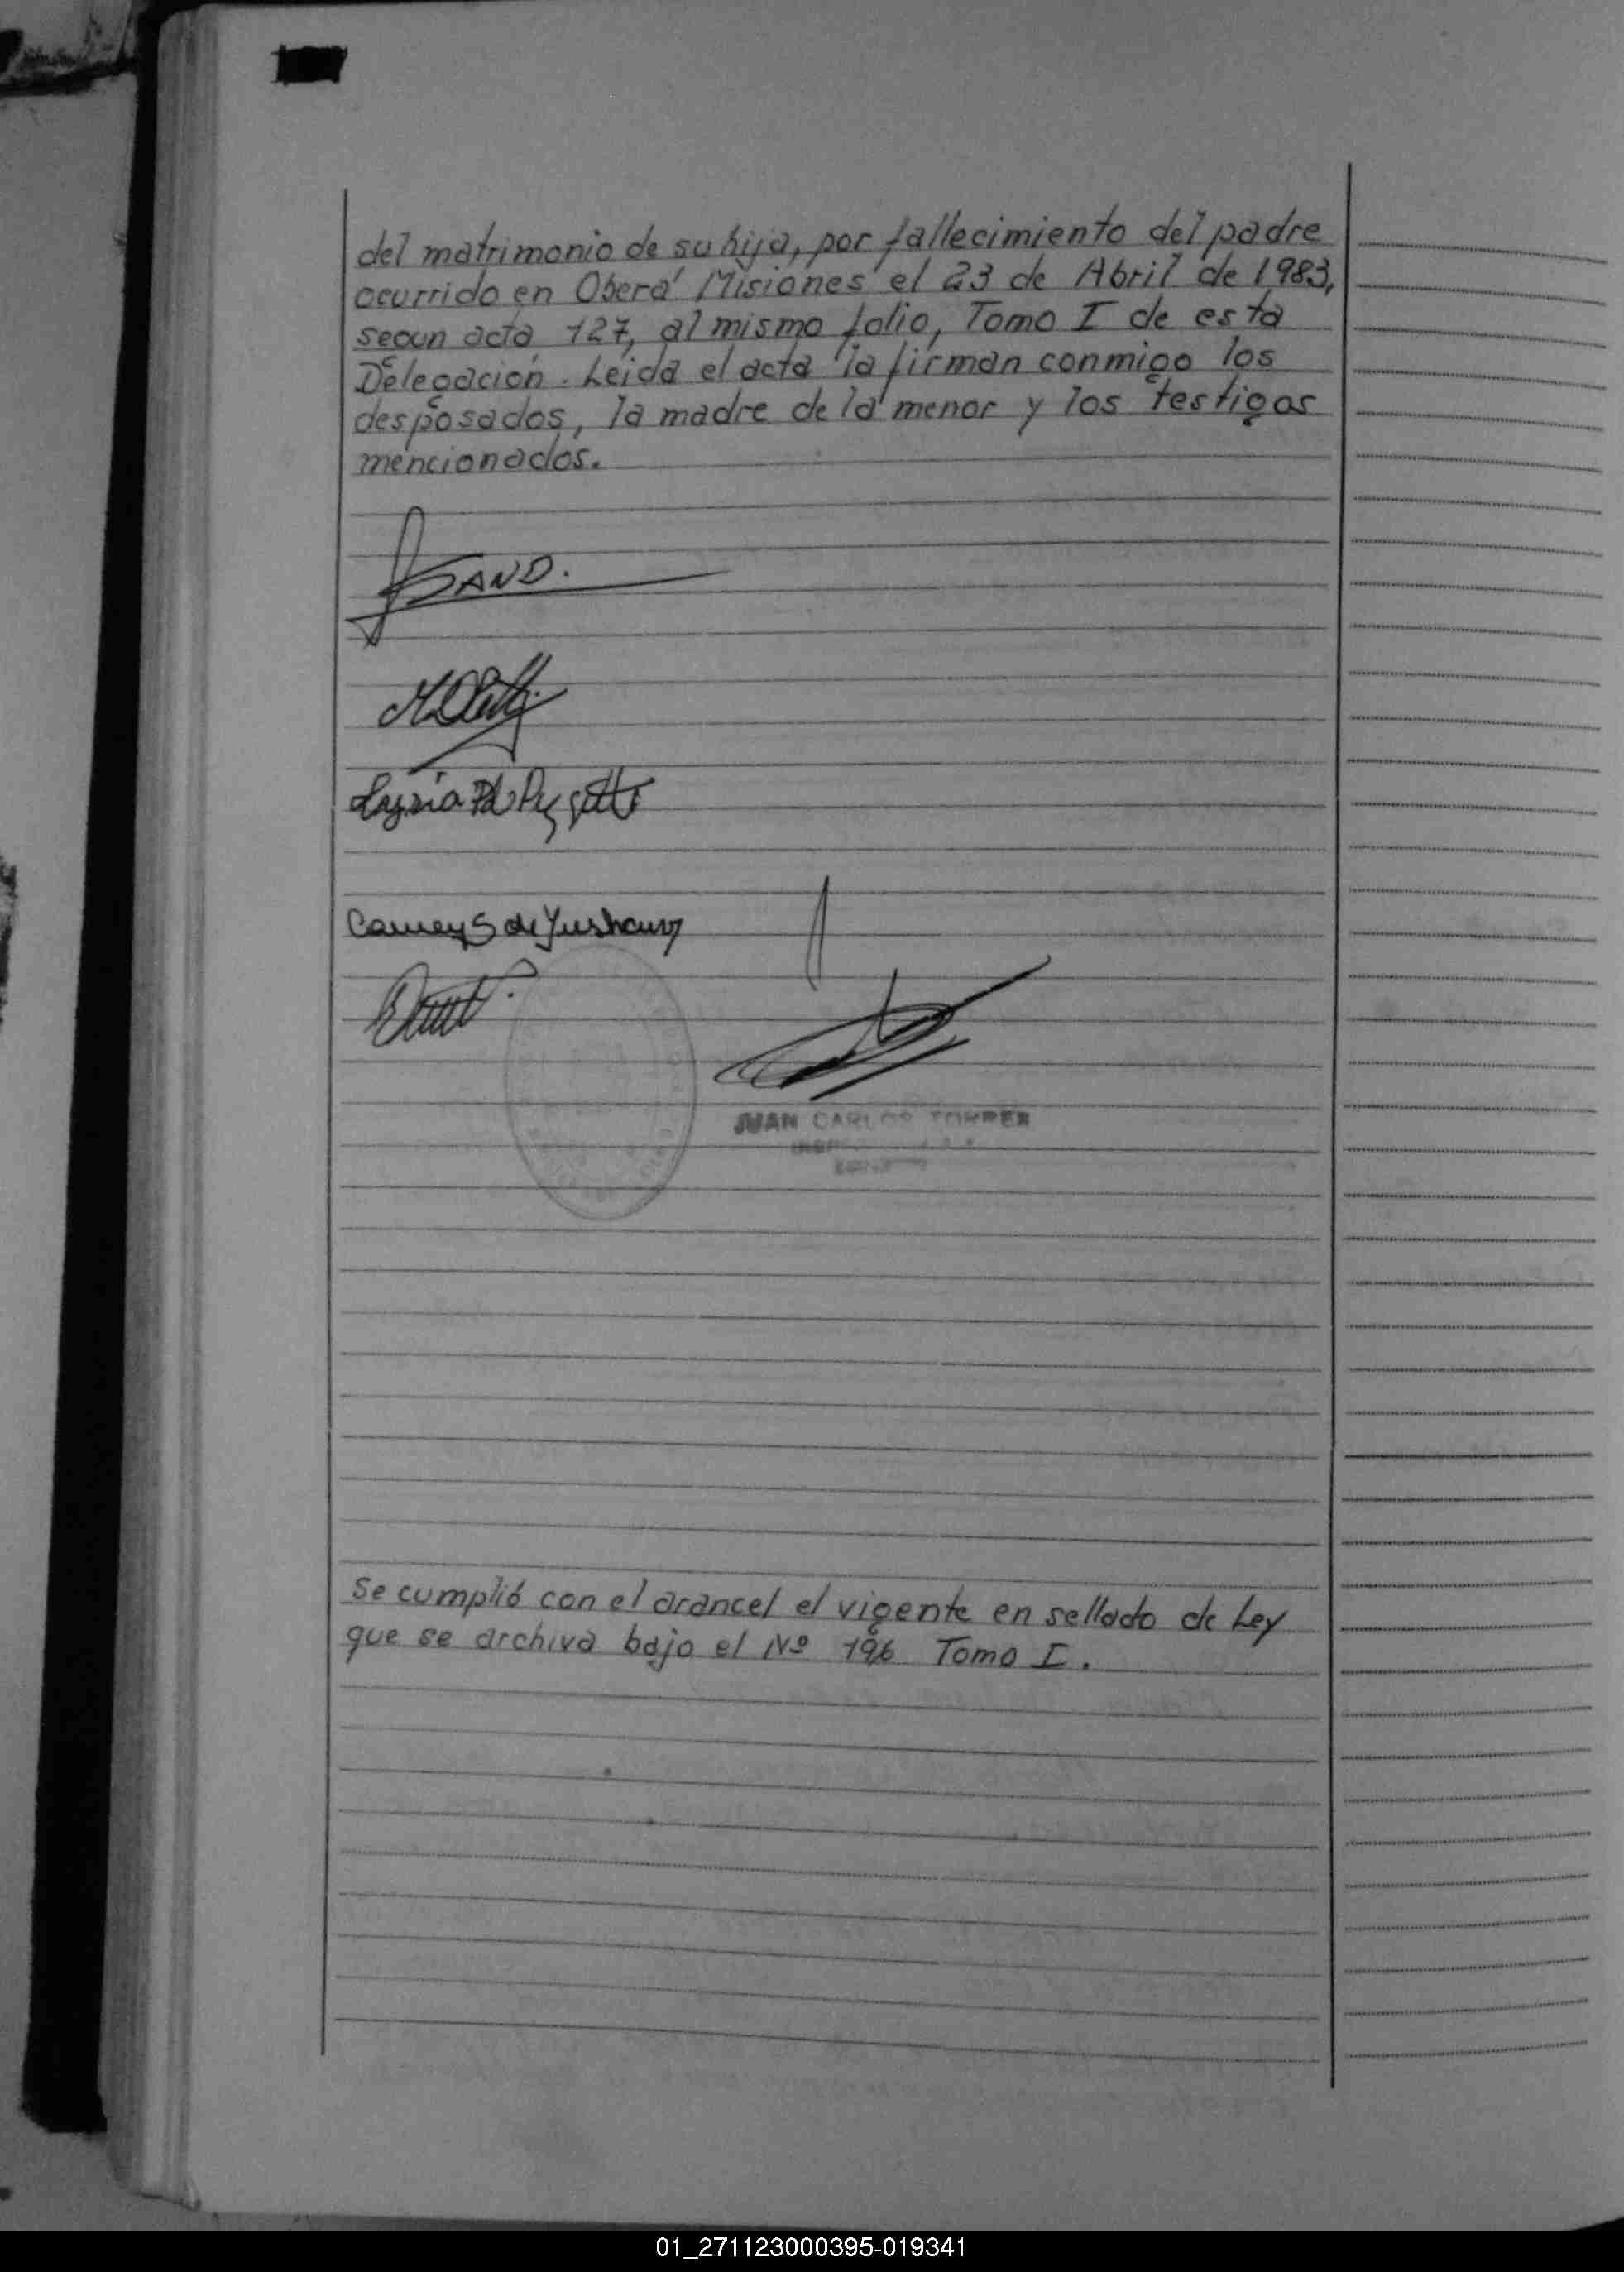 del matrimonio de su hija, por fallecimiento del padre
ocurrido en Oberá Misiones el 23 de Abril de 1983,
segun acta 127, al mismo folio, Tomo I de esta
Delegación. Leida el acta la firman conmigo los
desposados, la madre de la menor y los testigos
mencionados.
SAND.
JUAN CARLOS TORRES
Se cumplió con el arancel el vigente en sellado de Ley
que se archiva bajo el Nº 196 Tomo I.
01_271123000395-019341